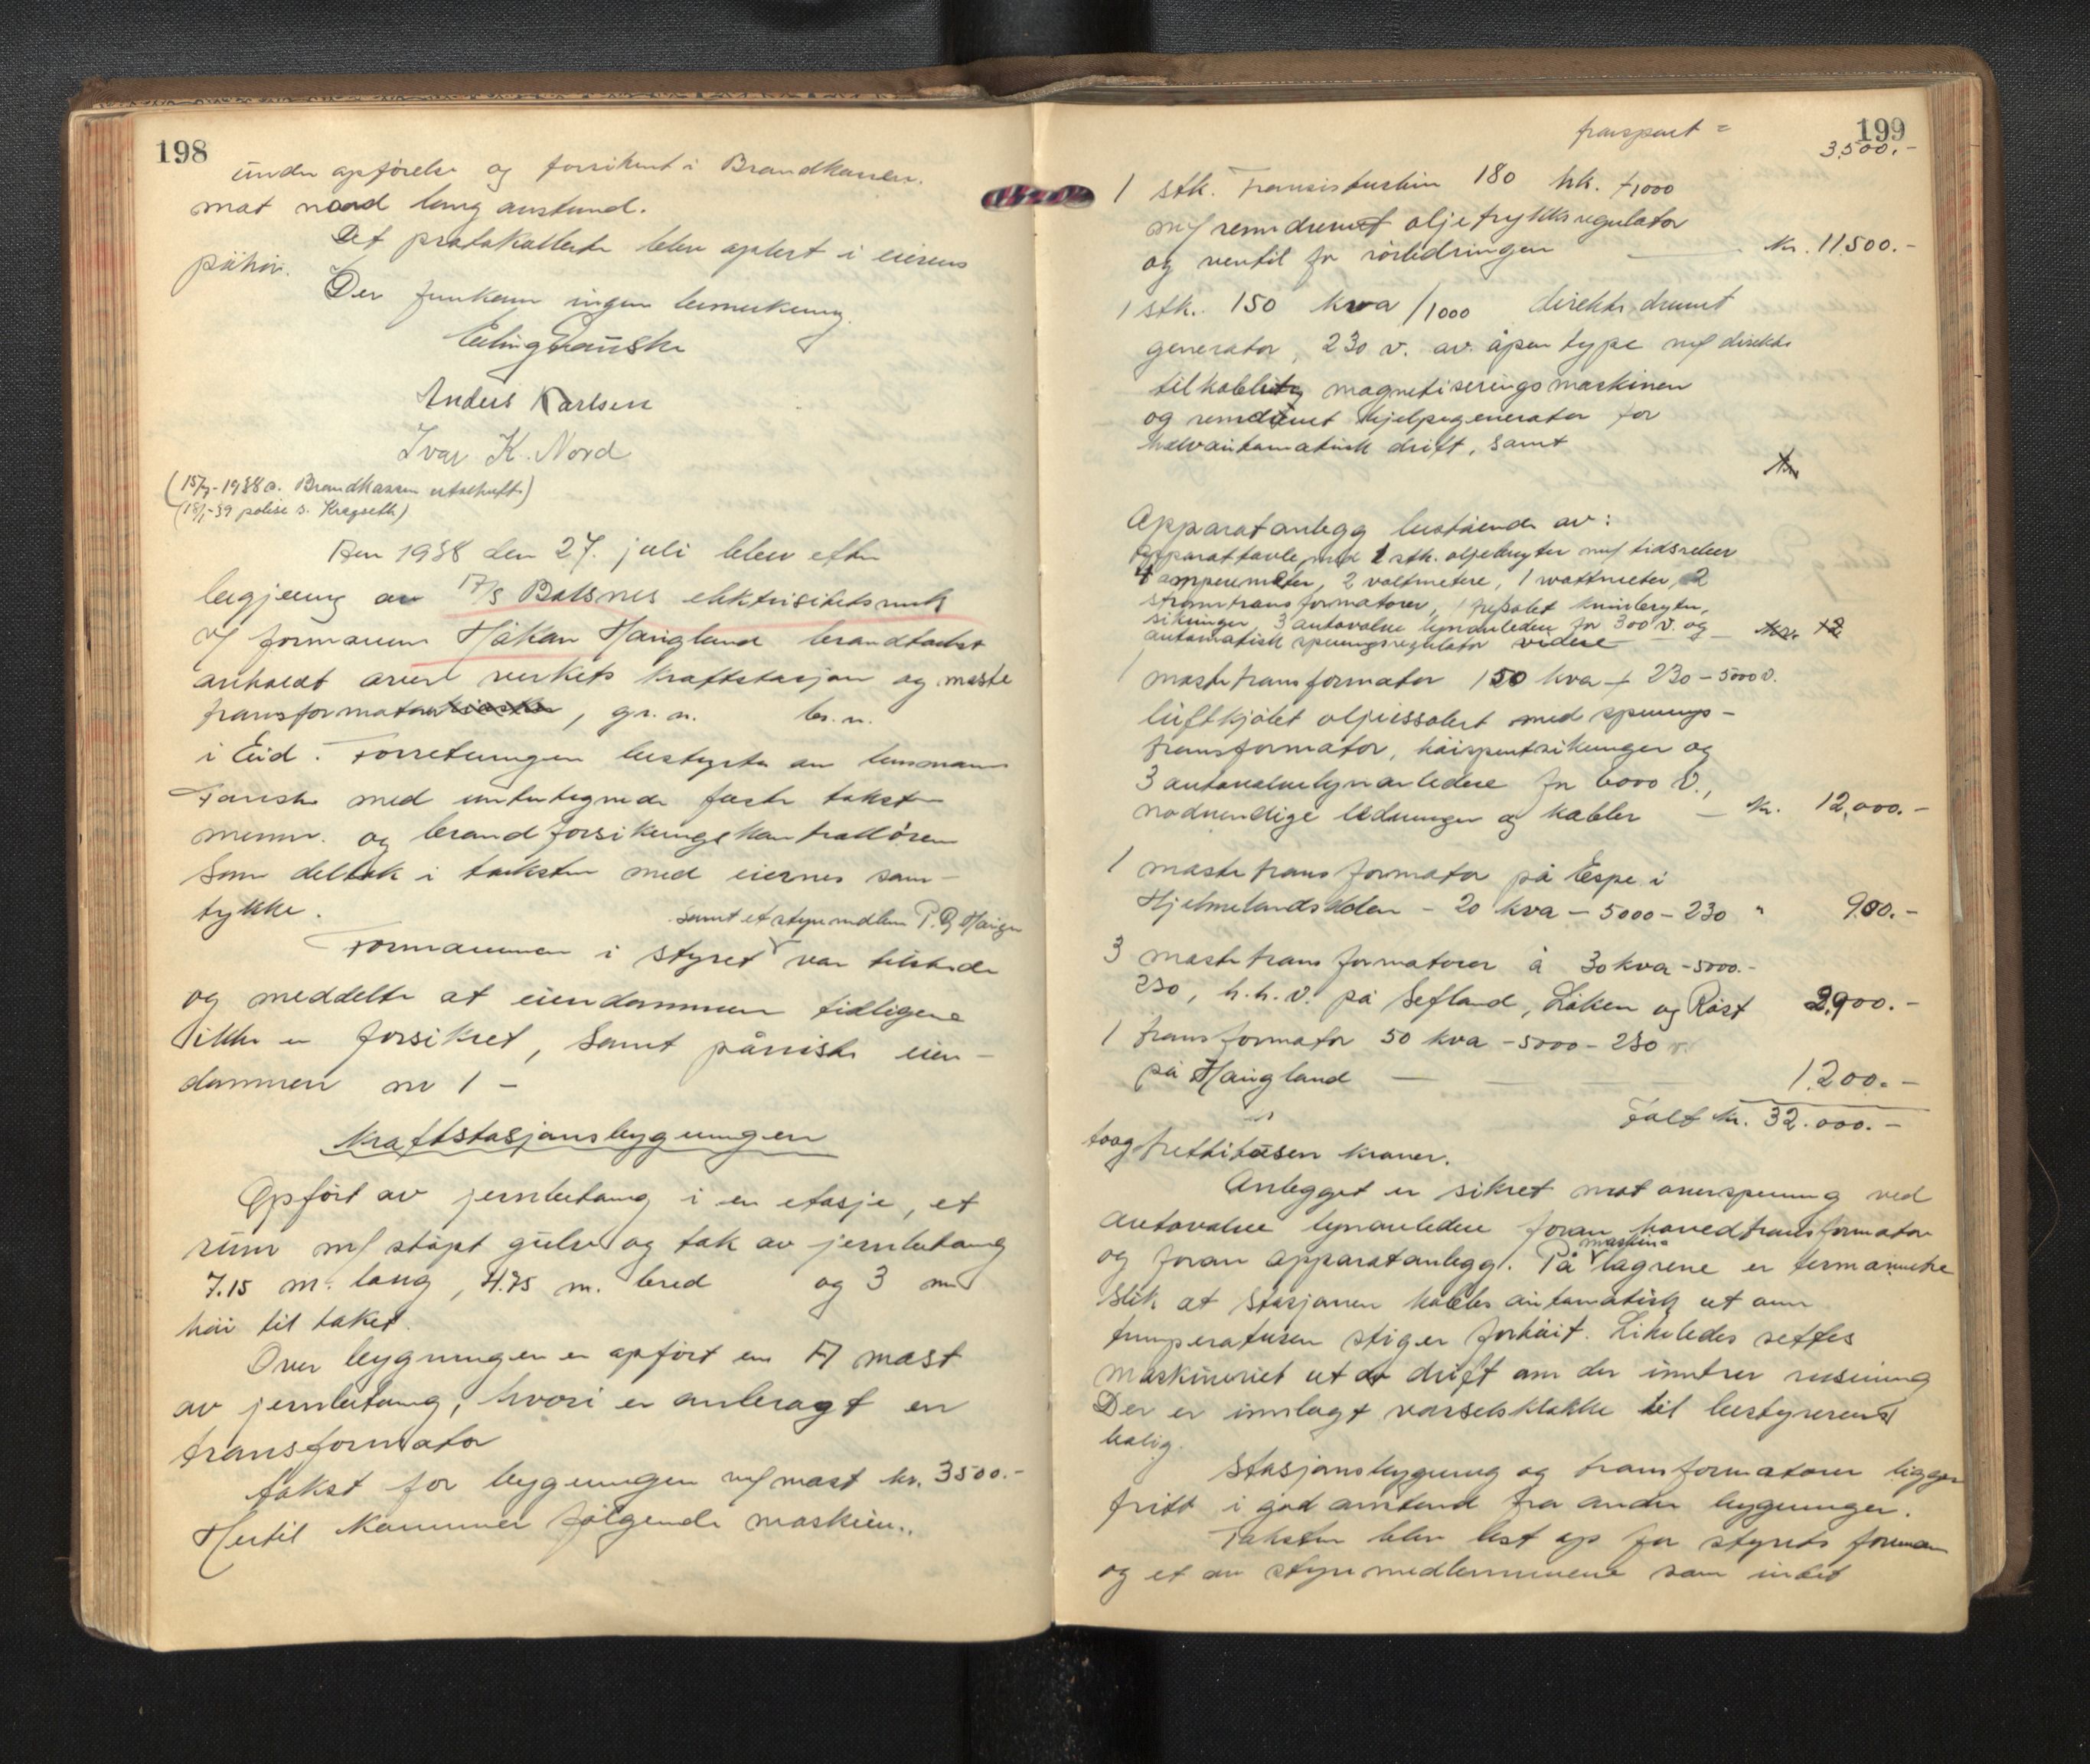 198
under opførelse og forsikret i Brandkassen.
mot nord lang avstand.
Det protokollerte blev oplest i eierens
påhør.
Der fremkom ingen bemerkning.
Erling Fauske
Anders Karlsen
Ivar K. Nord
(15/9-1938 a. Brandkassen utskrift)
(18/1-39 polise s. Kragseth)
Aar 1938 den 27. juli blev efter
begjæring av A/S Botsnes elektrisitetsverk
v/ formannen Håkon Haugland brandtakst
avholdt over verkets kraftstasjon og maste
transformatorer, gr. n. br. n.
i Eid. Forretningen bestyrte av lensmann
Fauske med undertegnede faste takst
menn. og brandforsikringskontrolløren
som deltok i taksten med eiernes sam-
tykke.
samt et styremedlem P. O. Hauge
Formannen i styret var tilstede
og meddelte at eiendommen tidligere
ikke er forsikret, samt påviste eien-
dommen nr 1 -
Kraftstasjonsbygningen
Opført av jernbetong i en etasje, et
rum m/ støpt gulv og tak av jernbetong
7.15 m. lang, 4.75 m. bred og 3 m
høi til taket.
Over bygningen er opført en A mast
av jernbetong, hvori er anbragt en
transformator
Takst for bygningen m/ mast kr. 3500.-
Hertil kommer følgende maskin..
199
transport = 3,500.-
1 stk. Francisturbin 180 hk. +1000
m/ remdrevet oljetrykksregulator
og ventil for rørledningen — kr. 11.500.-
1 stk. 150 kva /1000 direkte drevet
generator, 230 v. av åpen type m/ direkte
tilkoblet magnetiseringsmaskinen
og remdrevet hjelpegenerator for
halvautomatisk drift, samt
Apparatanlegg bestående av:
Apparattavle med 1 stk. oljebryter m/ tidsreleer
4 amperemeter, 2 voltmetere, 1 wattmeter, 2
strømtransformatorer, 1 trepolet knivbryter,
sikringer, 3 autovalve lynavledere for 300 v. og
automatisk spenningsregulator videre
1 mastetransformator 150 kva + 230 - 5000 v.
luftkjølet oljeisolert med spennings-
transformator, høispentsikringer og
3 autovalvelynavledere for 6000 v.,
nødvendige ledninger og kabler — kr. 12,000.-
1 mastetransformator på Espe i
Hjelmelandsdalen - 20 kva - 5000 - 230 " 900.-
3 mastetransformatorer à 30 kva - 5000.-
230, h.h.v. på Sefland, Løken og Røst 2,900.-
1 transformator 50 kva - 5000 - 230 v.
på Haugland — 1.200.-
Talt kr. 32.000.-
toogtrettitusen kroner.
Anlegget er sikret mot overspenning ved
autovalve lynavledere foran hovedtransformator
og foran apparatanlegg. På maskinlagrene er termometre
slik at stasjonen kobles automatisk ut om
temperaturen stiger forhøit. Likeledes settes
maskineriet ut av drift om der inntrer rusning
Der er innlagt varselsklokke til bestyrerens
bolig.
Stasjonsbygning og transformatorer ligger
fritt i god avstand fra andre bygninger.
Taksten blev lest op for styrets formann
og et av styremedlemmene som intet